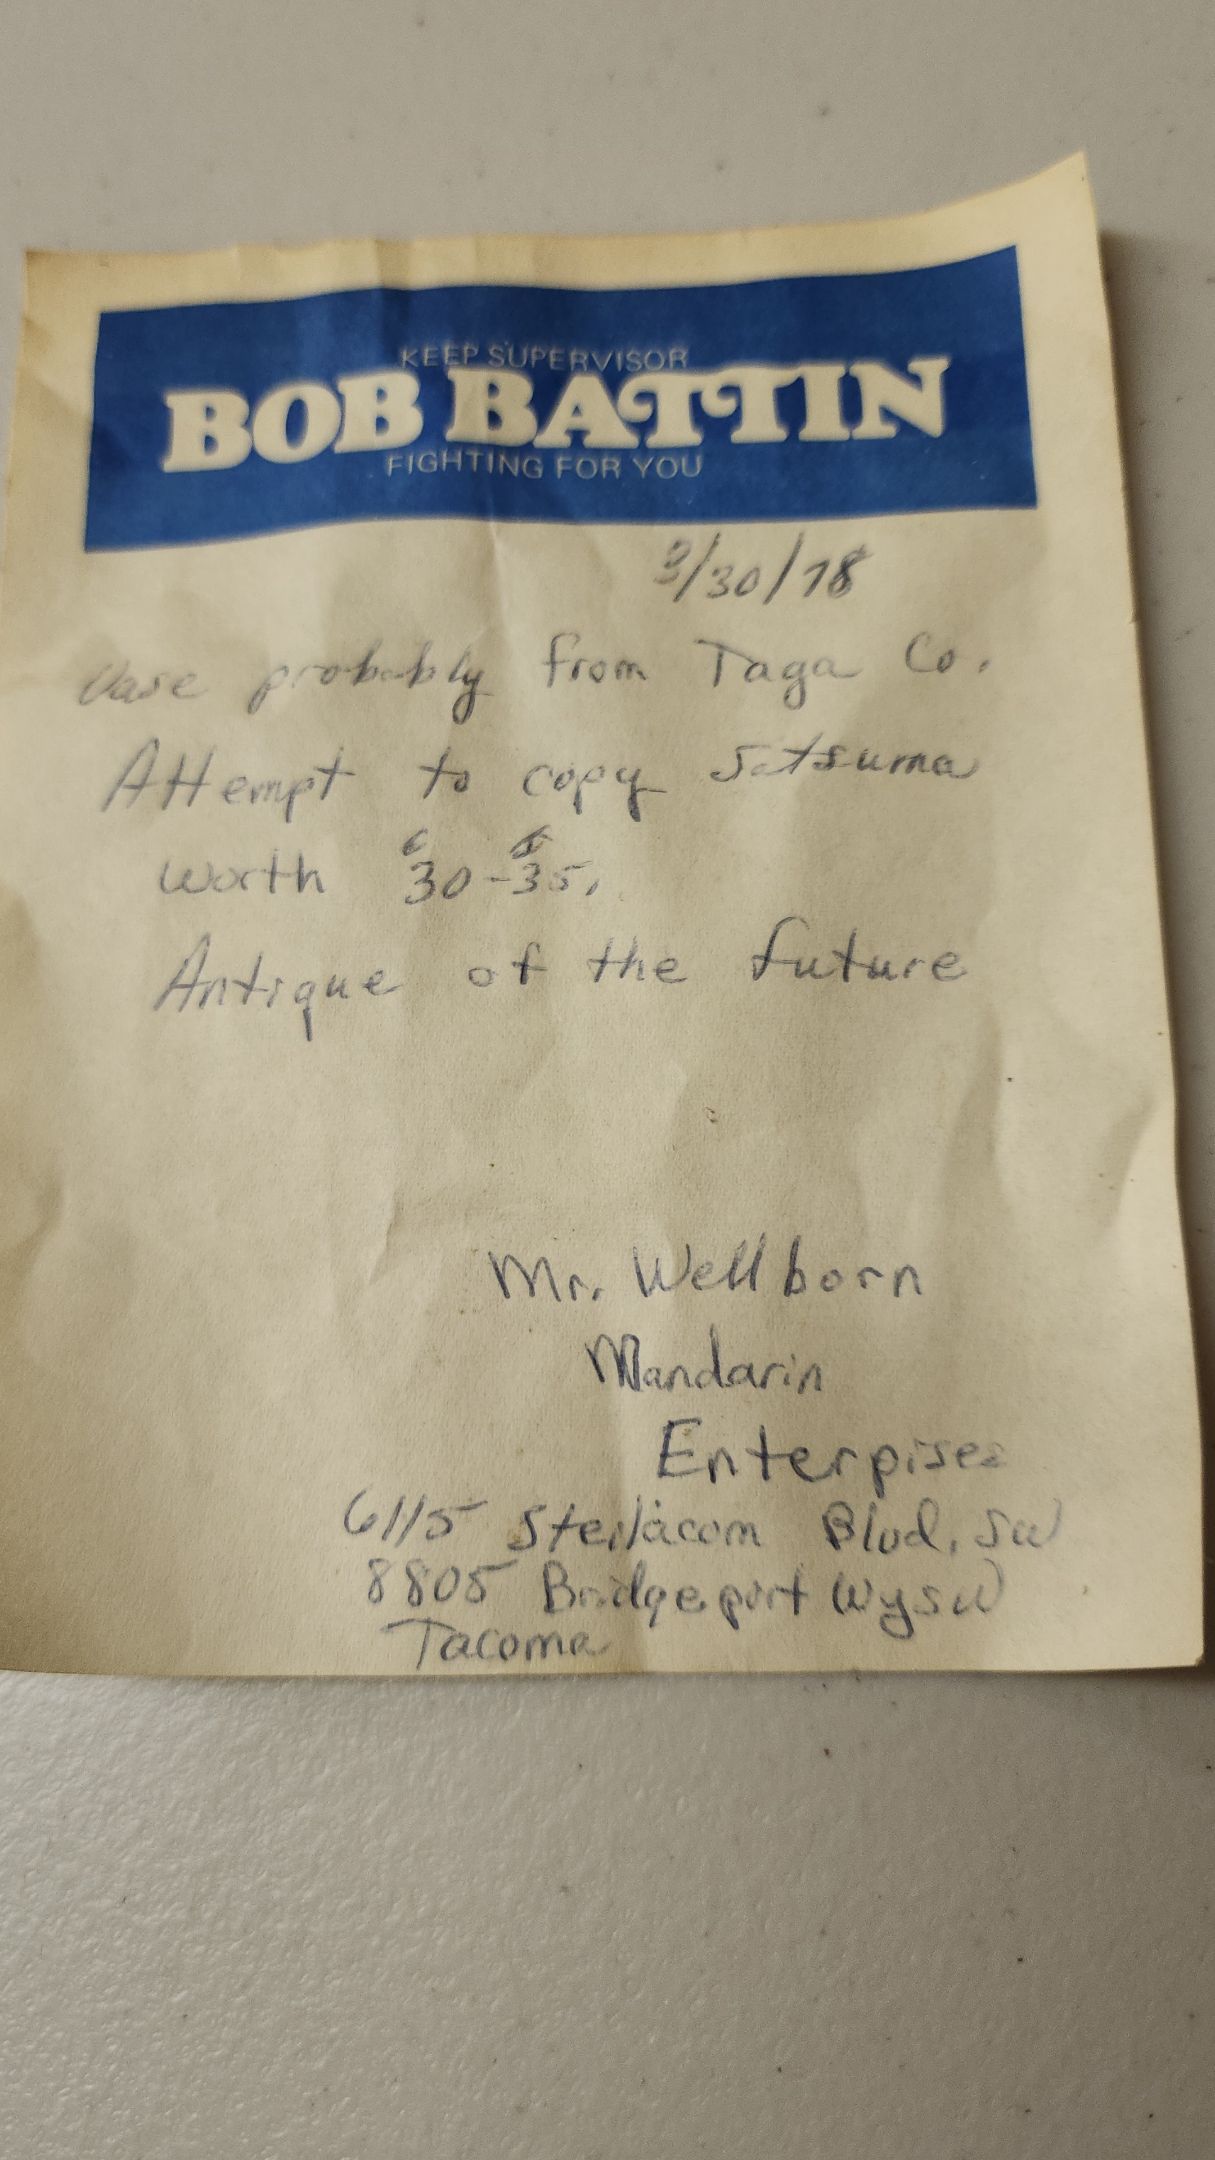 KEEP SUPERVISOR
BOB BATTIN
FIGHTING FOR YOU
3/30/78
Vase probably from Taga Co.
Attempt to copy Satsuma
worth 30-35.
Antique of the future
Mr. Wellborn
Mandarin
Enterpises
6115 Steilacom Blvd. SW
8805 Bridgeport Wy SW
Tacoma